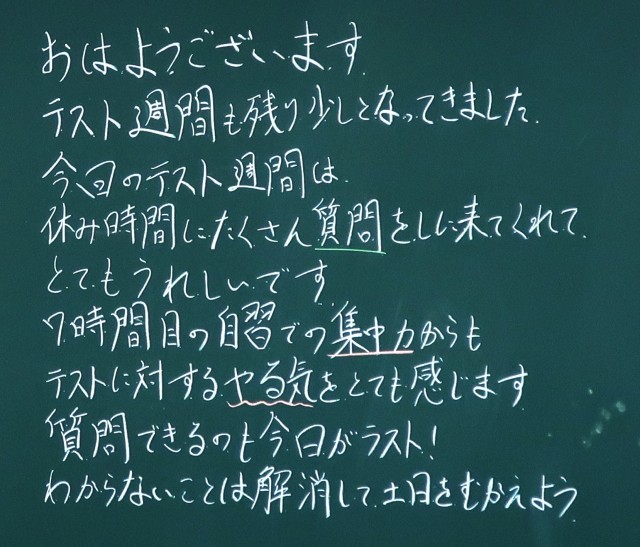 おはようございます
テスト週間も残り少しとなってきました
今回のテスト週間は
休み時間にたくさん質問をしに来てくれて
とてもうれしいです
7時間目の自習での集中力からも
テストに対するやる気をとても感じます
質問できるのも今日がラスト!
わからないことは解消して土日をむかえよう